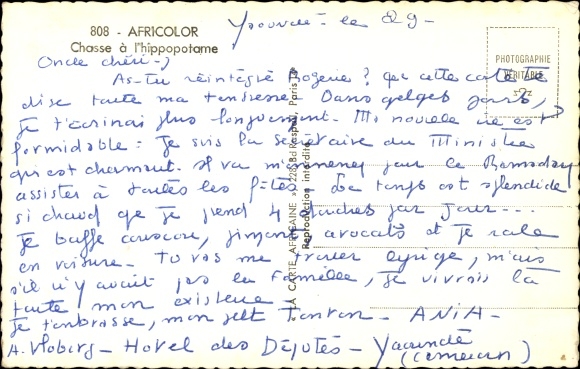 808 - AFRICOLOR
Chasse à l'hippopotame
Yaoundé - le 29 -
PHOTOGRAPHIE
VÉRITABLE
Oncle chéri -
As-tu réintégré ? que cette carte te
dise toute ma tendresse. Dans qelqes jours,
je t'écrirai plus longuement. Ma nouvelle vie est
formidable : je suis la secrétaire du Ministre
qui est charmant. Il va m'emmener pour le Ramadan
assister à toutes les fêtes. Le temps est splendide
si chaud que je prend 4 douches par jour ---
Je bouffe couscous, avocats et je roule
en voiture. Tu vas me trouver, mais
s'il n'y avait pas la famille, je vivrais là
toute mon existence.
Je t'embrasse, mon petit Tonton. - ANIA -
A. - Hotel des Députés - Yaoundé
(Cameroun)
LA CARTE AFRICAINE Bd Raspail, Paris
Reproduction interdite